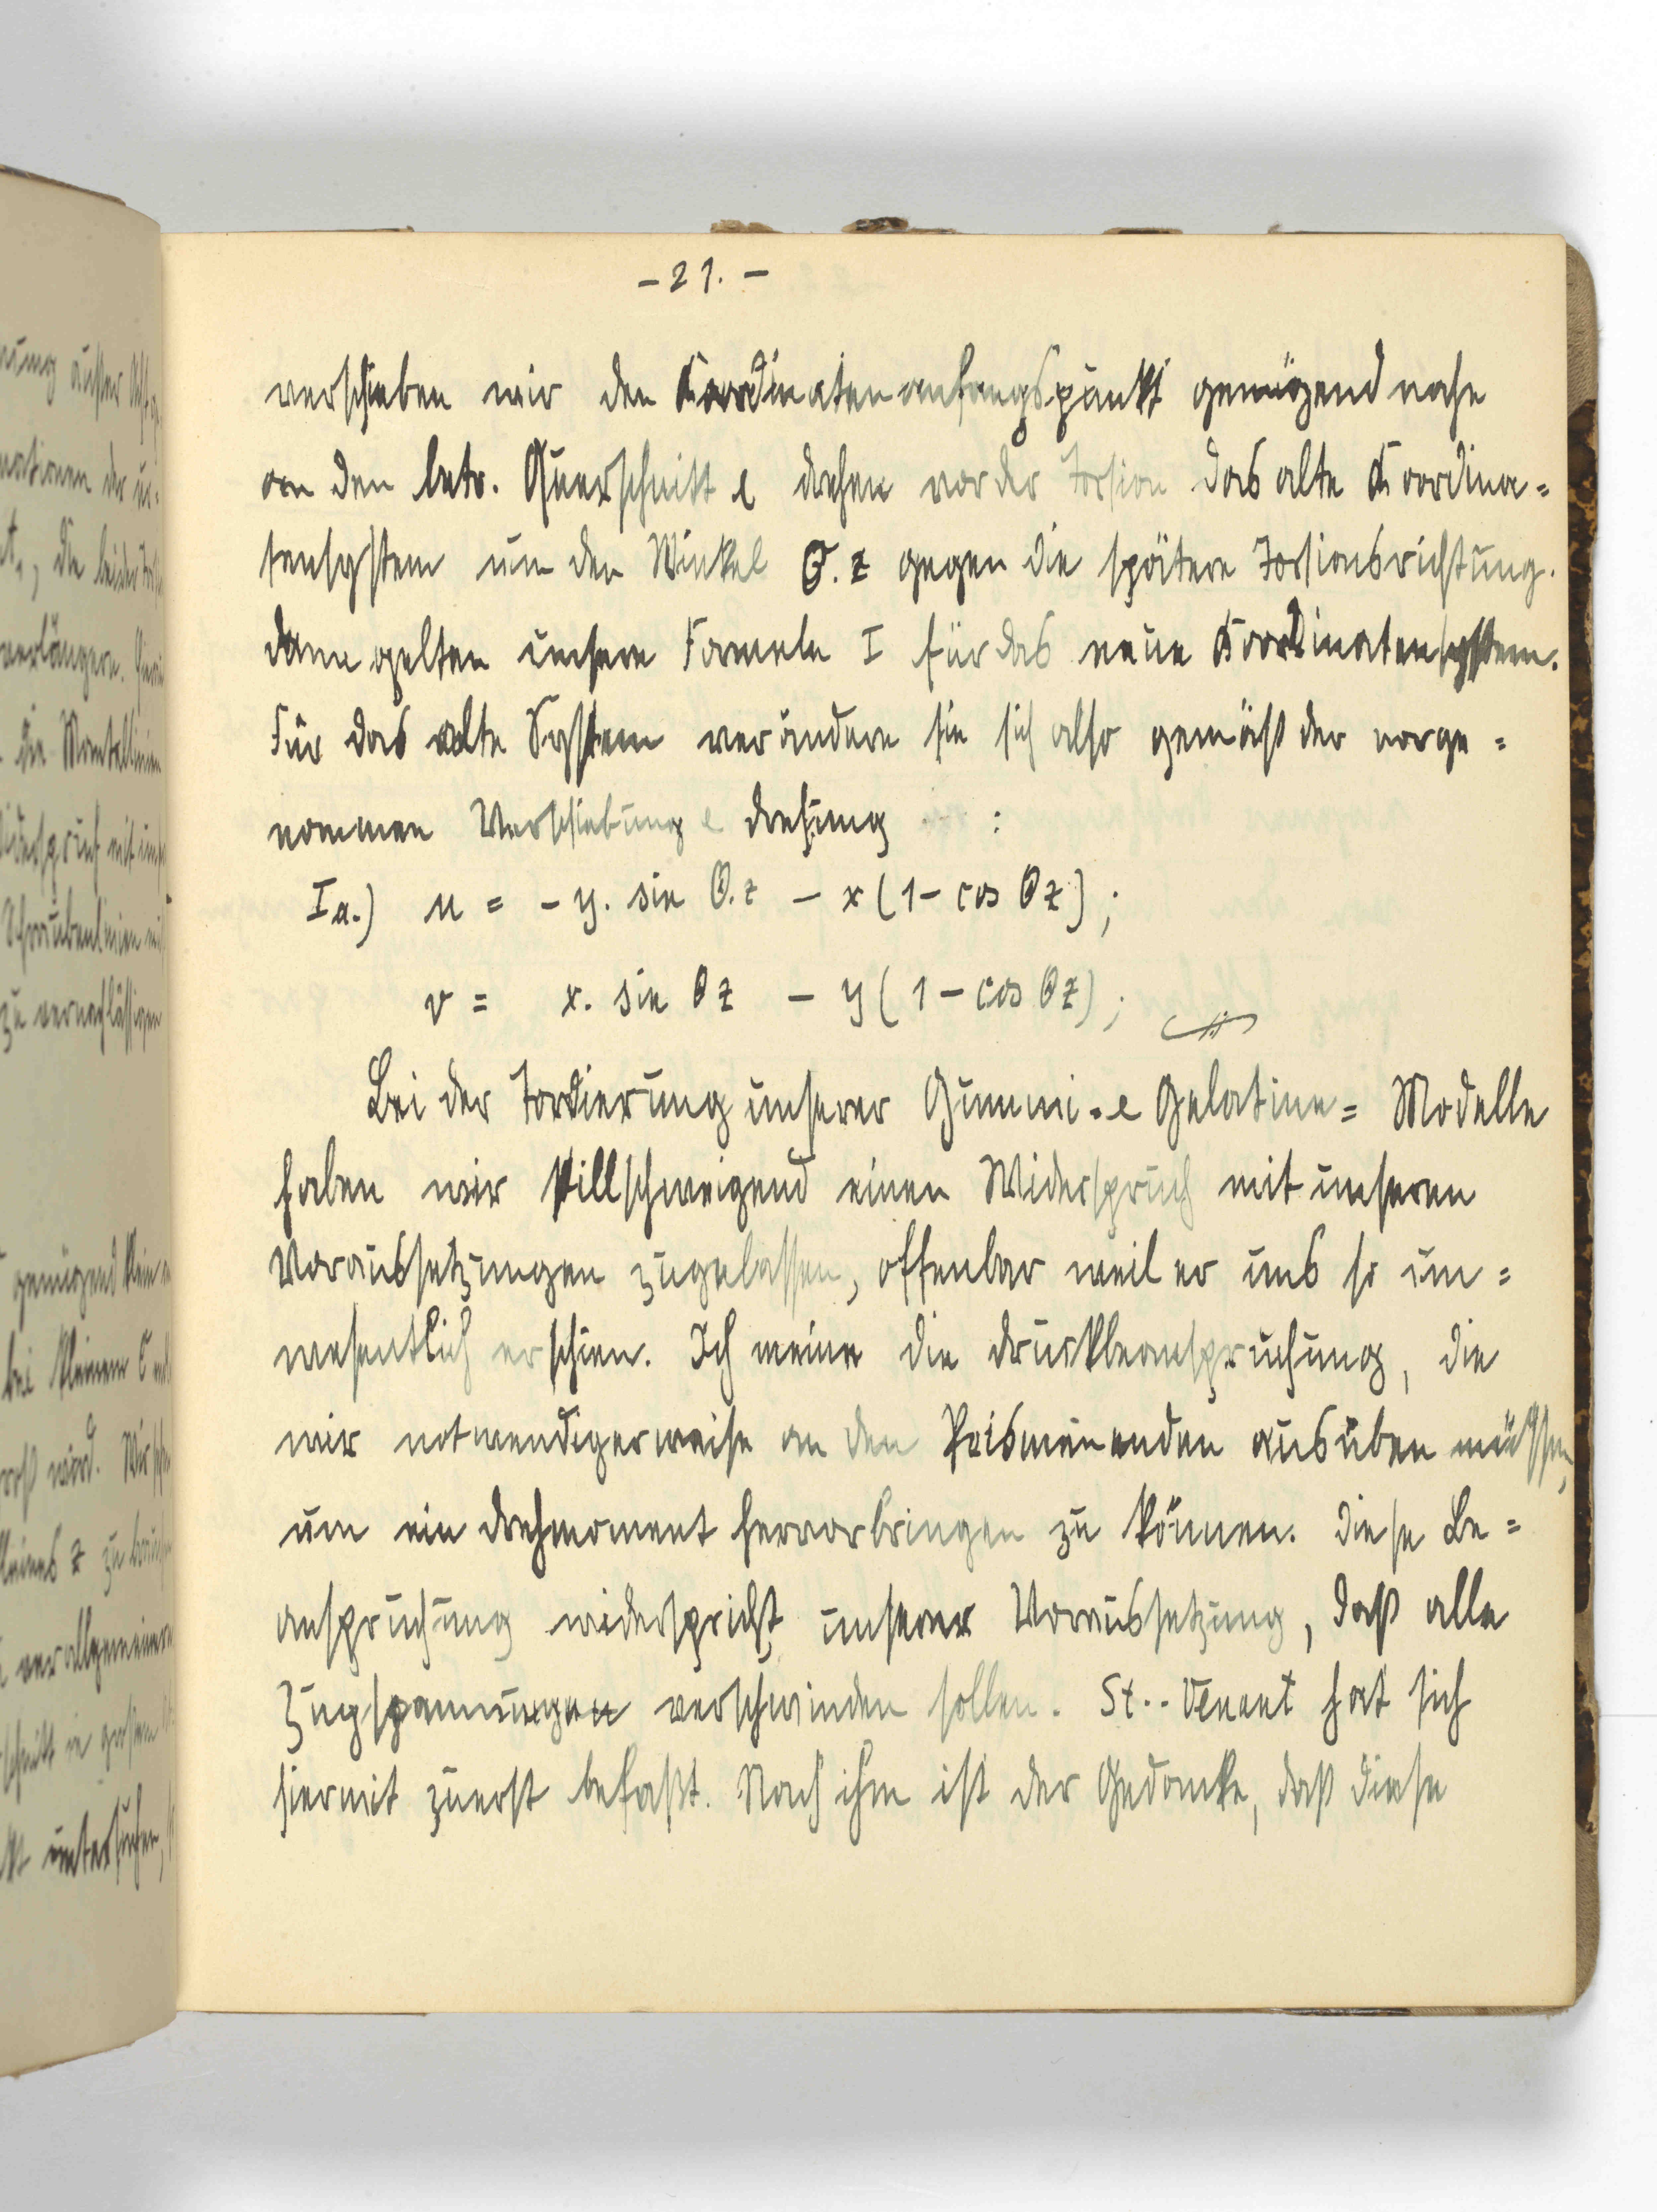 - 21. -
verschieben wir den Koordinatenanfangspunkt genügend nahe
an den betr. Querschnitt & drehen vor der Torsion das alte Koordina=
tensystem um den Winkel θ.z gegen die spätere Torsionsrichtung.
dann gelten unsere Formeln I für das neue Koordinatensystem.
Für das alte System verändern sie sich also gemäß der vorge=
nommen Verschiebung & drehung :
Ia.) u = - y. sin θ.z - x (1 - cos θz);
v = x. sin θz - y (1 - cos θz);
Bei der Tordierung unserer Gummi= & Gelatine= Modelle
haben wir stillschweigend einen Widerspruch mit unseren
Voraussetzungen zugelassen, offenbar weil er uns so un=
wesentlich erschien. Ich meine die druckbeanspruchung, die
wir notwendigerweise an den Prismenenden ausüben müssen,
um ein drehmoment hervorbringen zu können. diese Be=
anspruchung widerspricht unserer Voraussetzung, daß alle
Zugspannungen verschwinden sollen. St.. Venant hat sich
hiermit zuerst befaßt. Nach ihm ist der Gedanke, daß diese